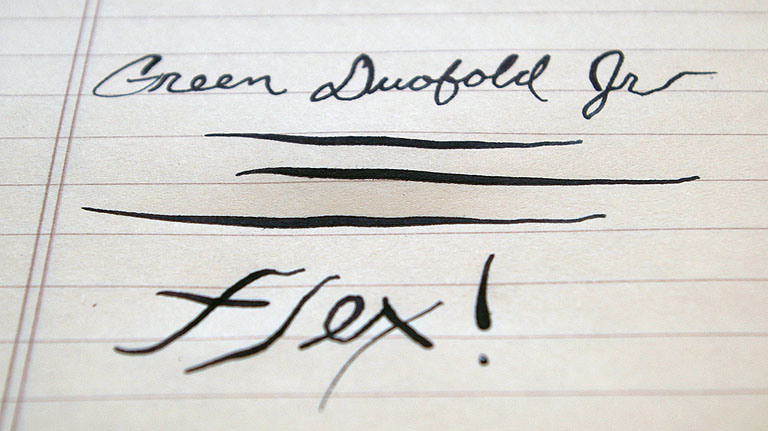 Green Duofold Jr
Flex!